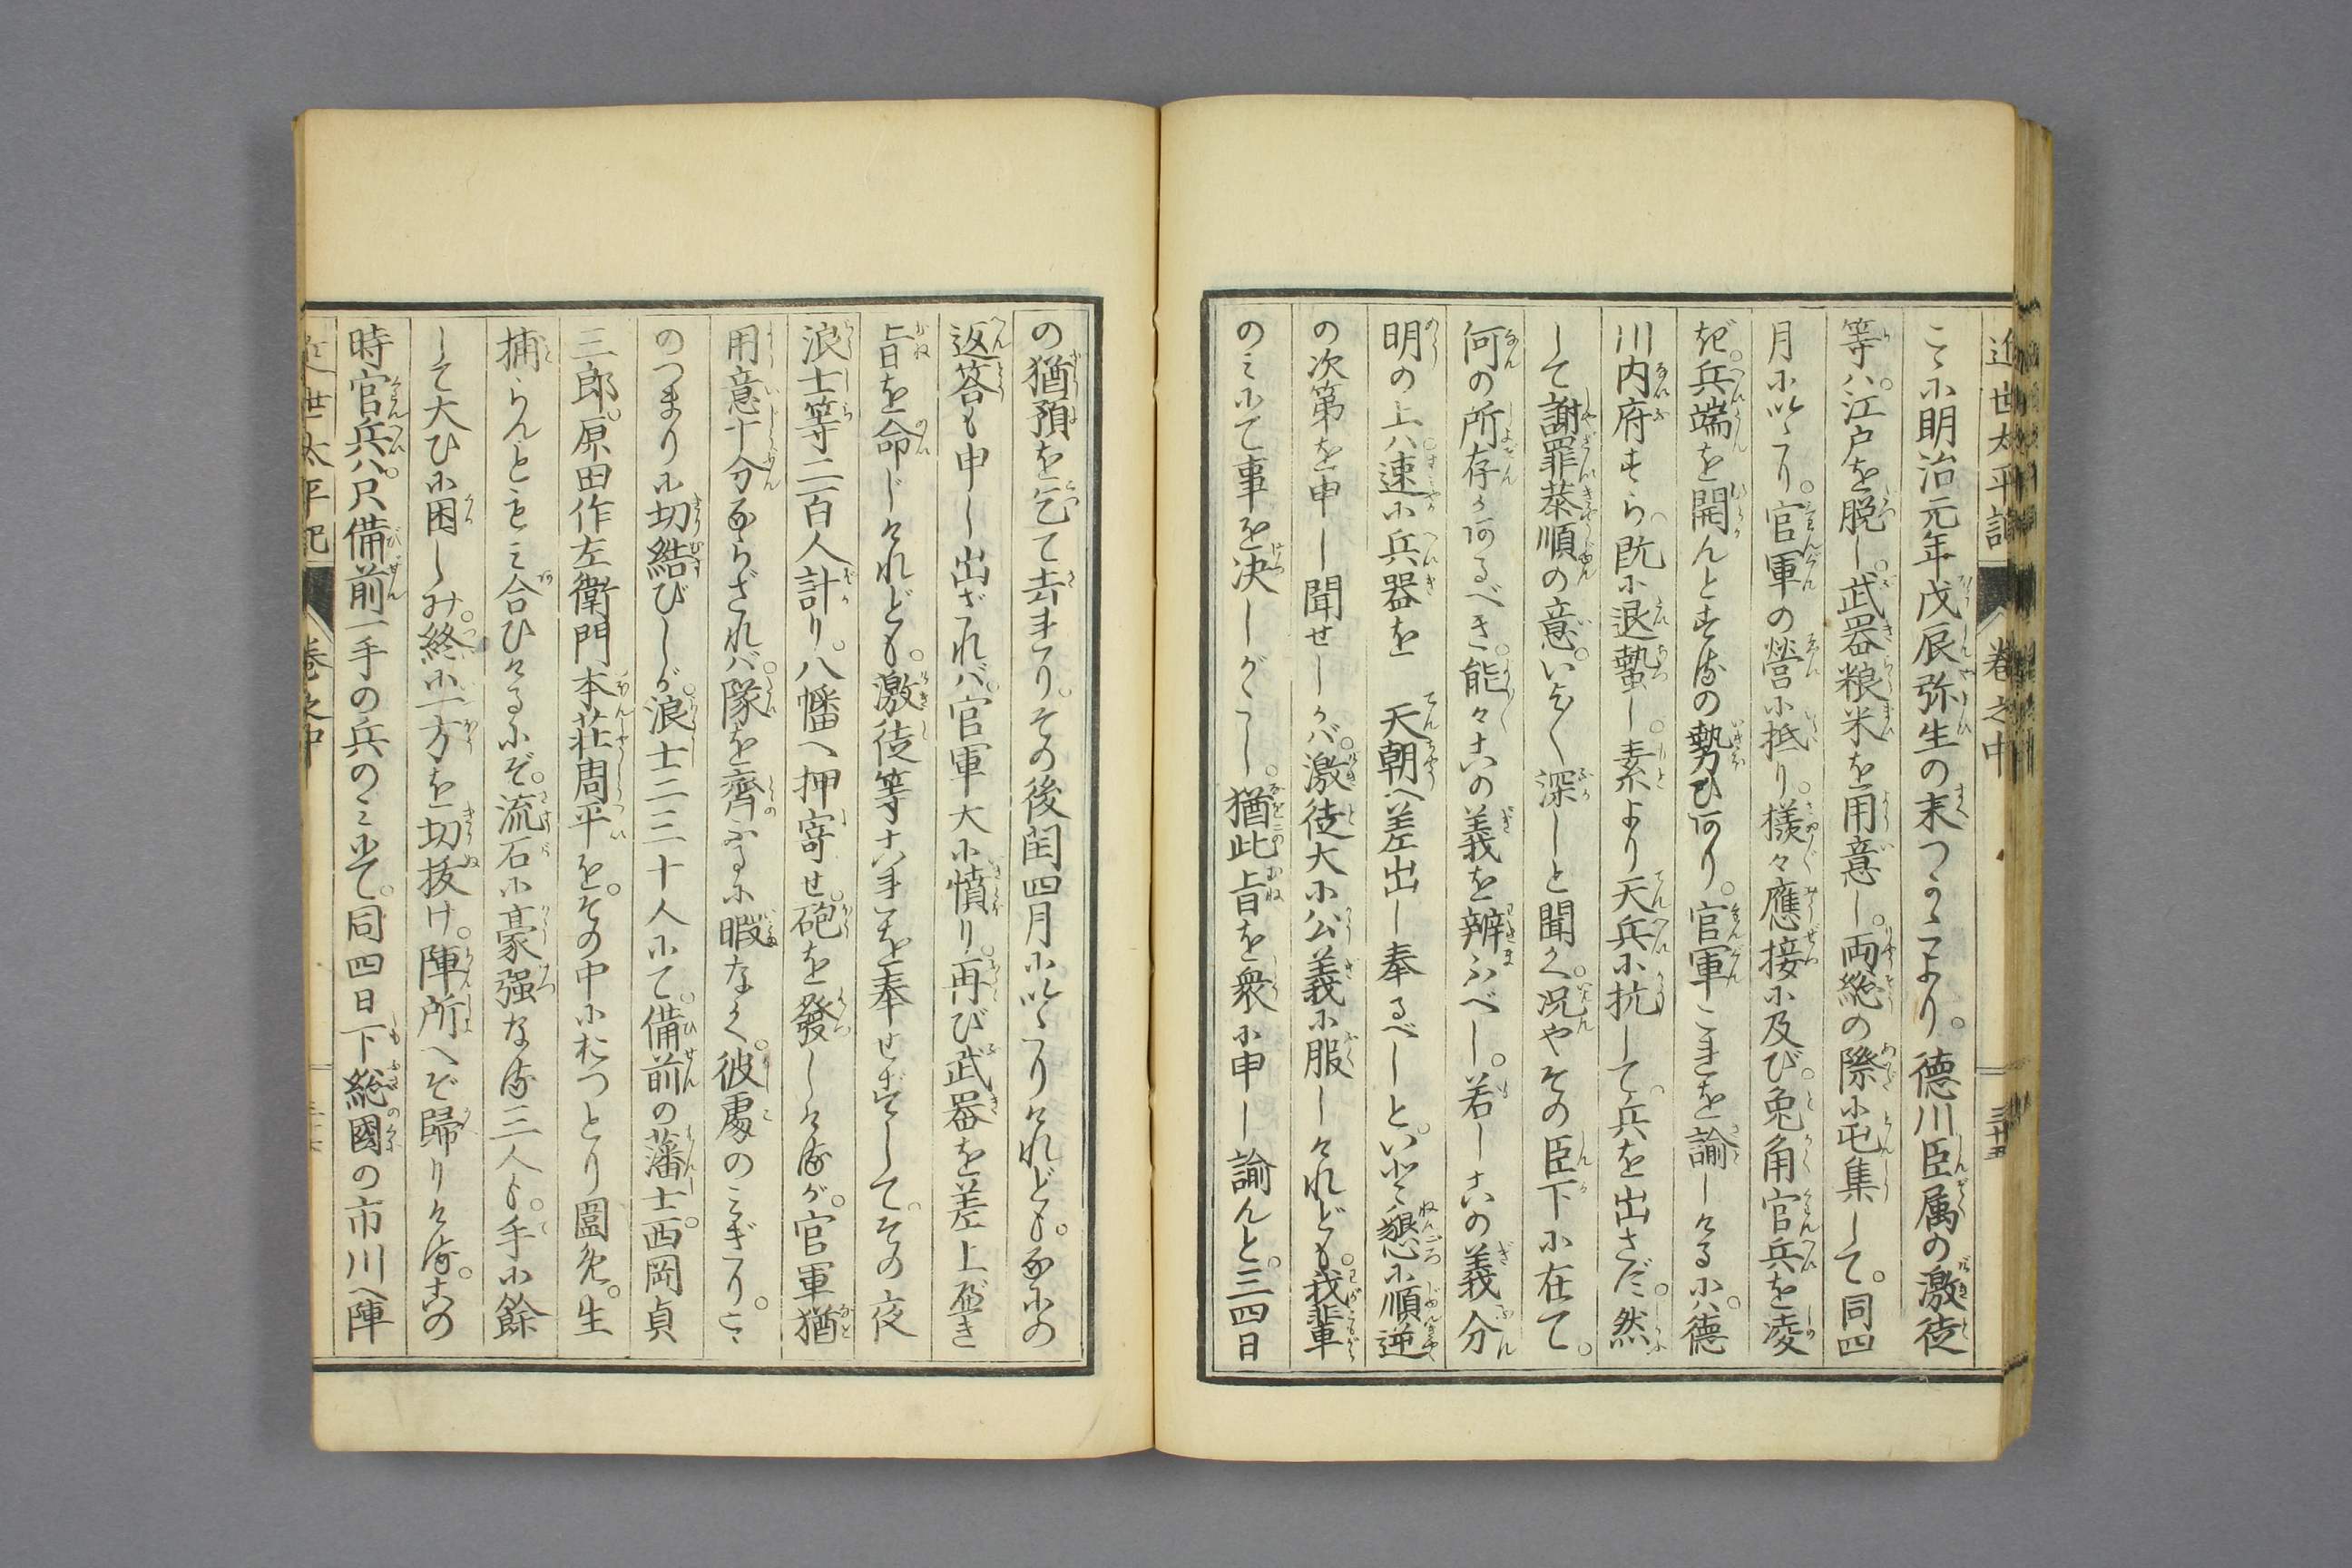 近世太平記 巻之中 三十五
こゝに明治元年戊辰弥生の末つかたより。徳川臣属の激徒
等ハ。江戸を脱し。武器粮米を用意し。両総の際に屯集して。同四
月にいたり。官軍の営に抵り。様々應接に及び。兎角官兵を凌
ぎ。兵端を開んとするの勢ひあり。官軍これを諭しけるに。徳
川内府すら既に退蟄し。素より天兵に抗して。兵を出さず。然
して謝罪恭順の意。いよ〳〵深しと聞く。况やその臣下に在て。
何の所存かあるべき。能々此の義を辨ふべし。若し此の義分
明の上ハ速に兵器を 天朝へ差出し奉るべしと。いと懇に順逆
の次第を申し聞せしかバ。激徒大に公義に服しけれども。我輩
のミにて事を決しがたし。猶此旨を衆に申し諭んと。三四日
の猶預を乞て去れり。その後閏四月にいたりけれども。なにの
返答も申し出ざれバ。官軍大に憤り。再び武器を差上べき
旨を命じけれども。激徒等此事を奉ぜずして。その夜
浪士等二百人計り。八幡へ押寄せ。砲を發しけるが。官軍猶
用意十分ならざれバ。隊を齊ふるに暇なく。彼處のミぎり。こゝ
のつまりに切結びしが。浪士二三十人にて。備前の藩士。西岡貞
三郎。原田作左衛門本荘周平を。その中におつとり圍た。生
捕らんともミ合ひけるにぞ。流石に豪强なる三人も。手に餘
して大ひに困しみ。終に一方を切抜け。陣所へぞ歸りける。此の
時官兵ハ。只備前一手の兵のミにて。同四日下総國の市川へ陣
近世太平記 巻之中